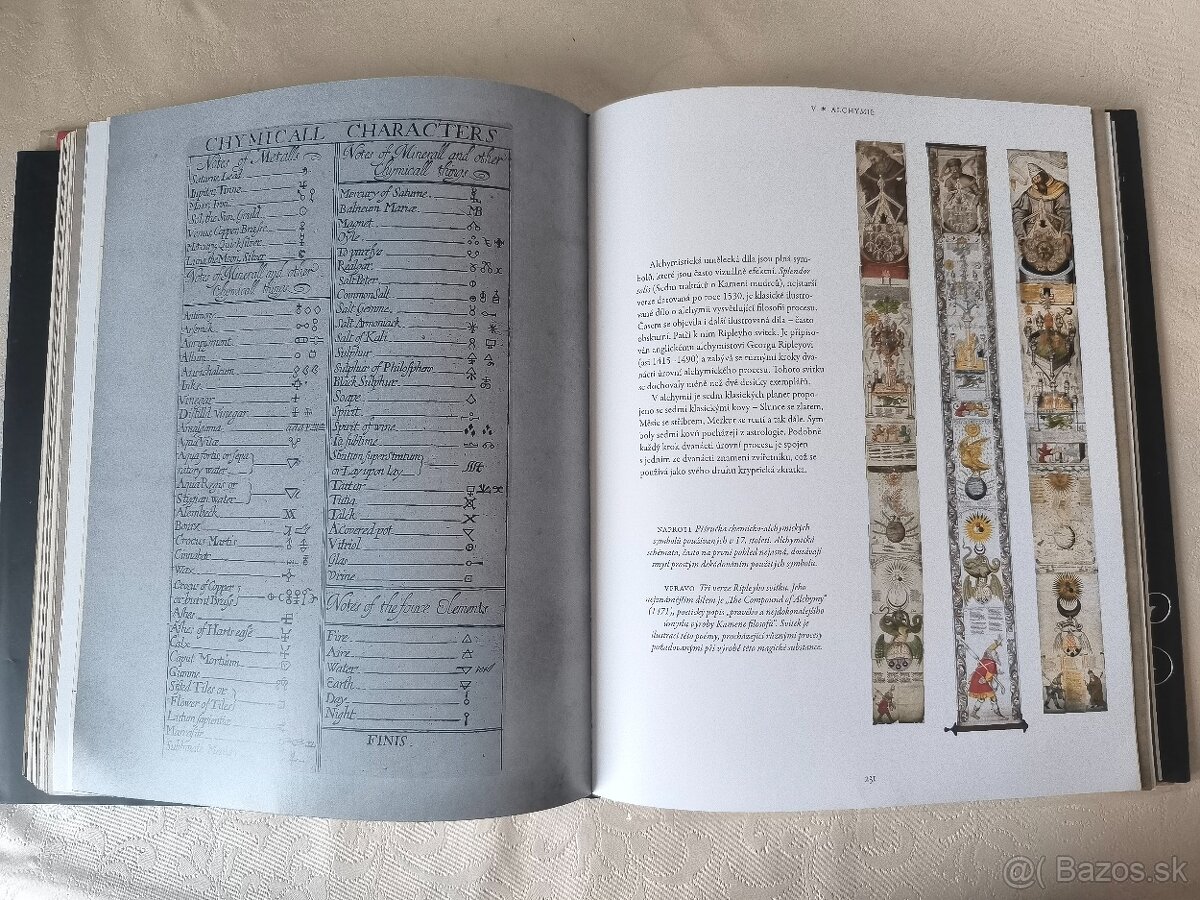 CHYMICALL CHARACTERS
Notes of Metalls
Saturne, Lead
Iupiter, Tinne
Mars, Iron
Sol, the Sun, Gould
Venus, Copper, Brasse
Mercury, Quicksilver
Luna, the Moon, Silver
Notes of Minerall and other
Chymicall things
Antimony
Arsenick
Auripigment
Allum
Aurichalcum
Inke
Vinegar
Distill'd Vinegar
Amalgama
Aqua Vitæ
Aqua fortis, or sepa
ratory water
Aqua Regis or
Stygian water
Alembeck
Borax
Crocus Martis
Cinnabar
Wax
Crocus of Copper
or burnt Brasse
Ashes
Ashes of Harts ease
Calx
Caput Mortuum
Gumme
Sifted Tiles or
Flower of Tiles
Lutum sapientiæ
Notes of Minerall and other
Chymicall things
Mercury of Saturne
Balneum Mariæ MB
Magnet
Oyle
To purifye
Realgar
Salt Peter
Common Salt
Salt Gemme
Salt Armoniack
Salt of Kali
Sulphur
Sulphur of Philosophers
Black Sulphur
Soape
Spirit
Spirit of wine
To sublime
Stratum super stratum
or Lay upon lay
Tartar
Tutia
Talck
A covered pot
Vitriol
Glas
Urine
Notes of the foure Elements
Fire
Aire
Water
Earth
Day
Night
FINIS
V ✶ ALCHYMIE
Alchymistická umělecká díla jsou plná sym-
bolů, které jsou často vizuálně efektní. Splendor
solis (Sedm traktátů o Kameni mudrců), nejstarší
verze datovaná po roce 1530, je klasické ilustro-
vané dílo o alchymii vysvětlující filosofii procesu.
Časem se objevila i další ilustrovaná díla – často
obskurní. Patří k nim Ripleyho svitek. Je připiso-
ván anglickému alchymistovi Georgu Ripleyovi
(asi 1415–1490) a zabývá se různými kroky dva-
nácti úrovní alchymického procesu. Tohoto svitku
se dochovaly méně než dvě desítky exemplářů.
V alchymii je sedm klasických planet propo-
jeno se sedmi klasickými kovy – Slunce se zlatem,
Měsíc se stříbrem, Merkur se rtutí a tak dále. Sym
boly sedmi kovů pocházejí z astrologie. Podobně
každý krok dvanácti úrovní procesu je spojen
s jedním ze dvanácti znamení zvířetníku, což se
používá jako svého druhu kryptická zkratka.
NAPROTI Příručka chemicko-alchymických
symbolů používaných v 17. století. Alchymická
schémata, často na první pohled nejasná, dostávají
smysl prostým dekódováním použitých symbolů.
VPRAVO Tři verze Ripleyho svitku. Jeho
nejznámějším dílem je „The Compound of Alchymy“
(1471), poetický popis „pravého a nejdokonalejšího
úmyslu výroby Kamene filosofů“. Svitek je
ilustrací této poémy, procházející různými procesy
požadovanými při výrobě této magické substance.
231
@( Bazos.sk